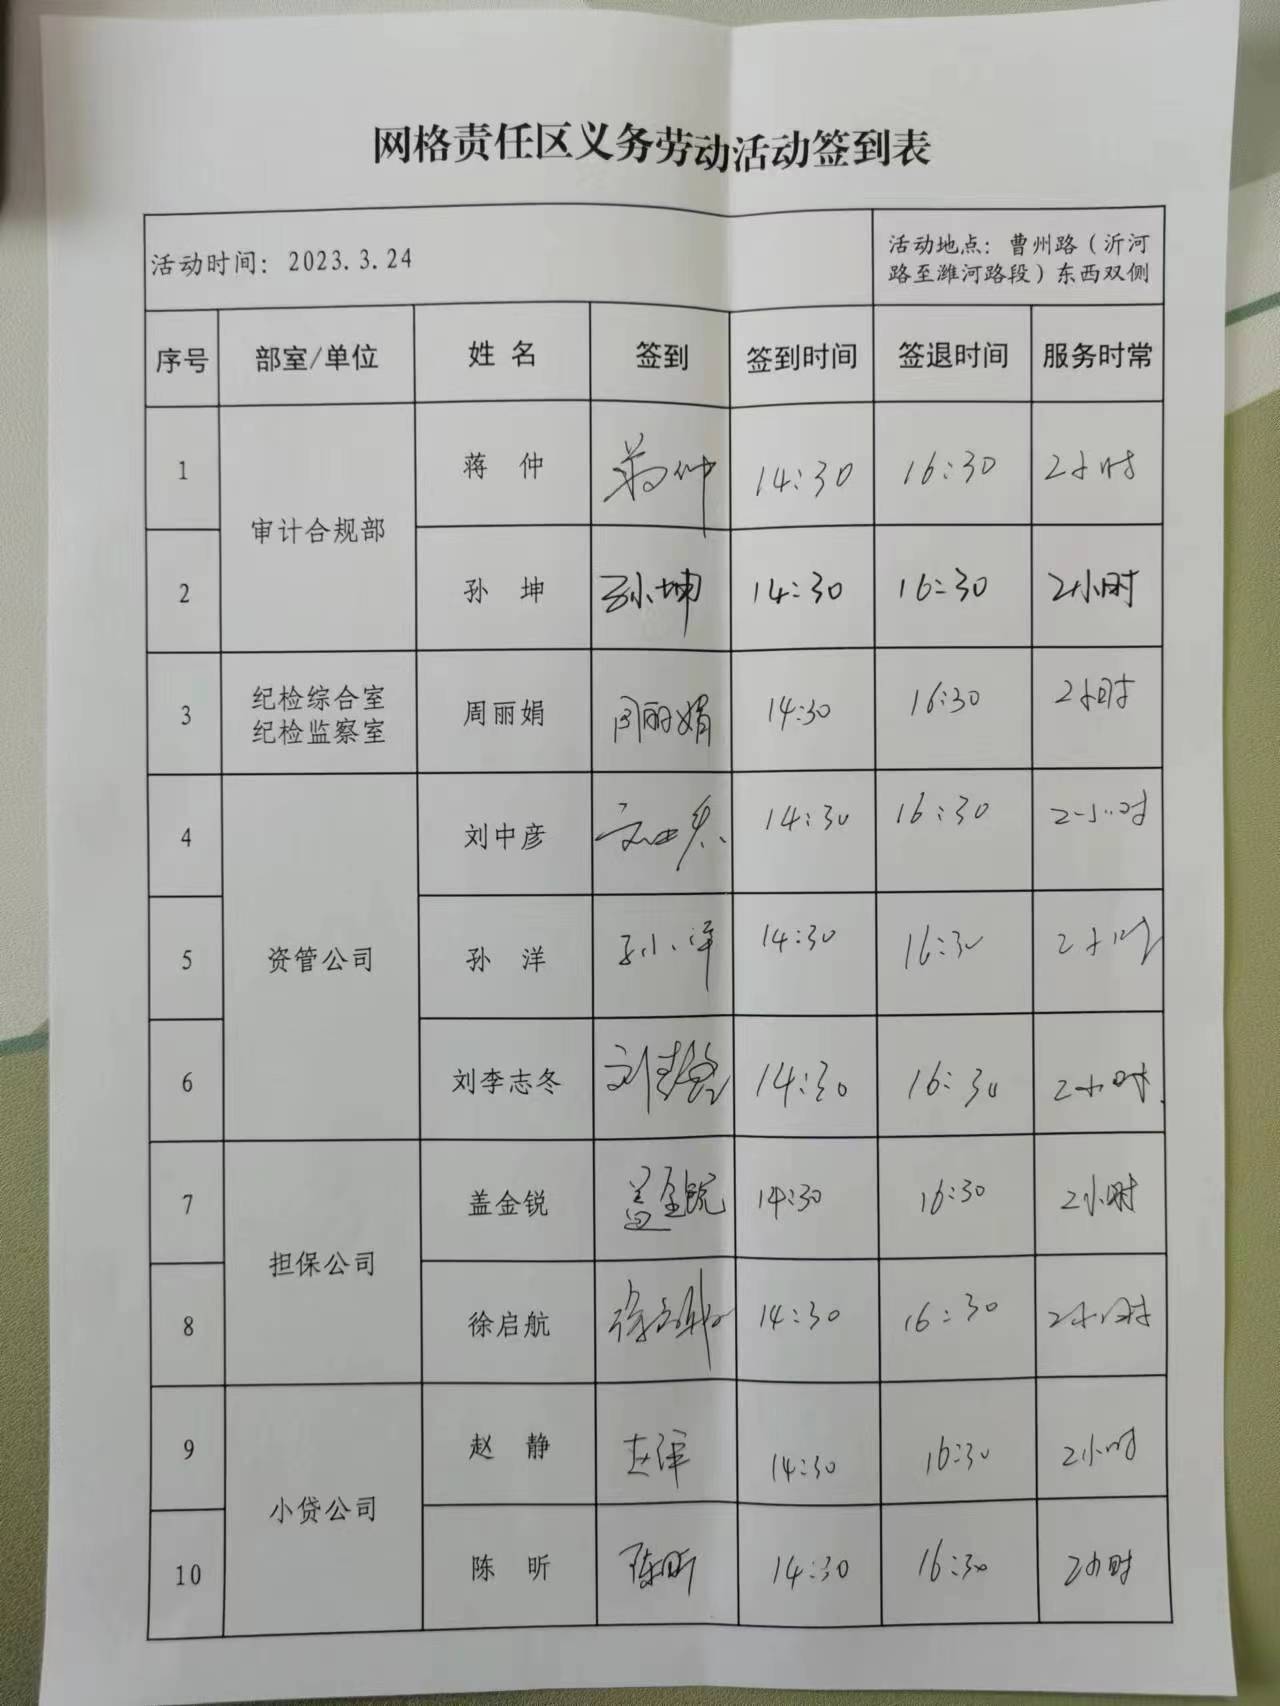 网格责任区义务劳动活动签到表
活动时间：2023.3.24
活动地点：曹州路（沂河
路至潍河路段）东西双侧
序号 部室/单位 姓名 签到 签到时间 签退时间 服务时常
审计合规部
1 蒋仲 蒋仲 14:30 16:30 2小时
2 孙坤 孙坤 14:30 16:30 2小时
纪检综合室
纪检监察室
3 周丽娟 周丽娟 14:30 16:30 2小时
资管公司
4 刘中彦 14:30 16:30 2小时
5 孙洋 孙洋 14:30 16:30 2小时
6 刘李志冬 14:30 16:30 2小时
担保公司
7 盖金锐 盖金锐 14:30 16:30 2小时
8 徐启航 徐启航 14:30 16:30 2小时
小贷公司
9 赵静 14:30 16:30 2小时
10 陈昕 陈昕 14:30 16:30 2小时